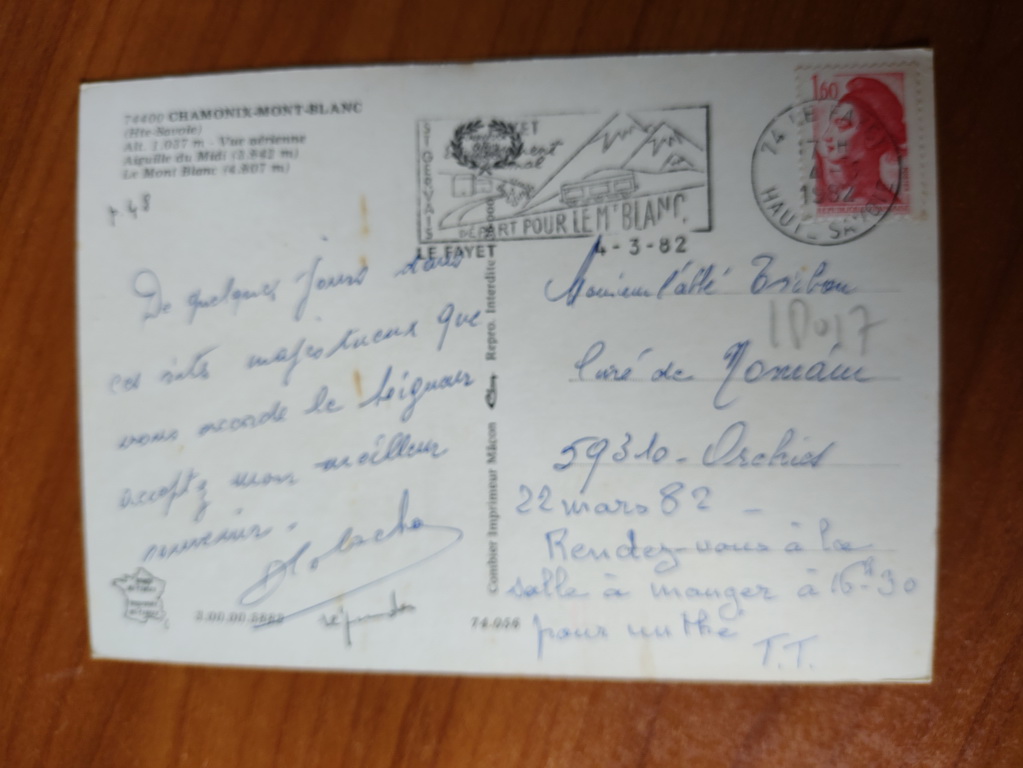 74400 CHAMONIX-MONT-BLANC
(Hte-Savoie)
Alt. 1.037 m - Vue aérienne
Aiguille du Midi (3.842 m)
Le Mont Blanc (4.807 m)
ST GERVAIS
LE FAYET
DÉPART POUR LE Mt BLANC
4-3-82
74 LE FAYET
1982
HAUTE SAVOIE
1,60
De quelques jours dans
ces sites majestueux que
nous accorde le Seigneur
acceptez mon meilleur
souvenir.
répondu
Combier Imprimeur Mâcon
Repro. Interdite
Monsieur l'abbé
Curé de Nomain
59310 - Orchies
22 mars 82 -
Rendez-vous à la
salle à manger à 16H30
pour un thé
T.T.